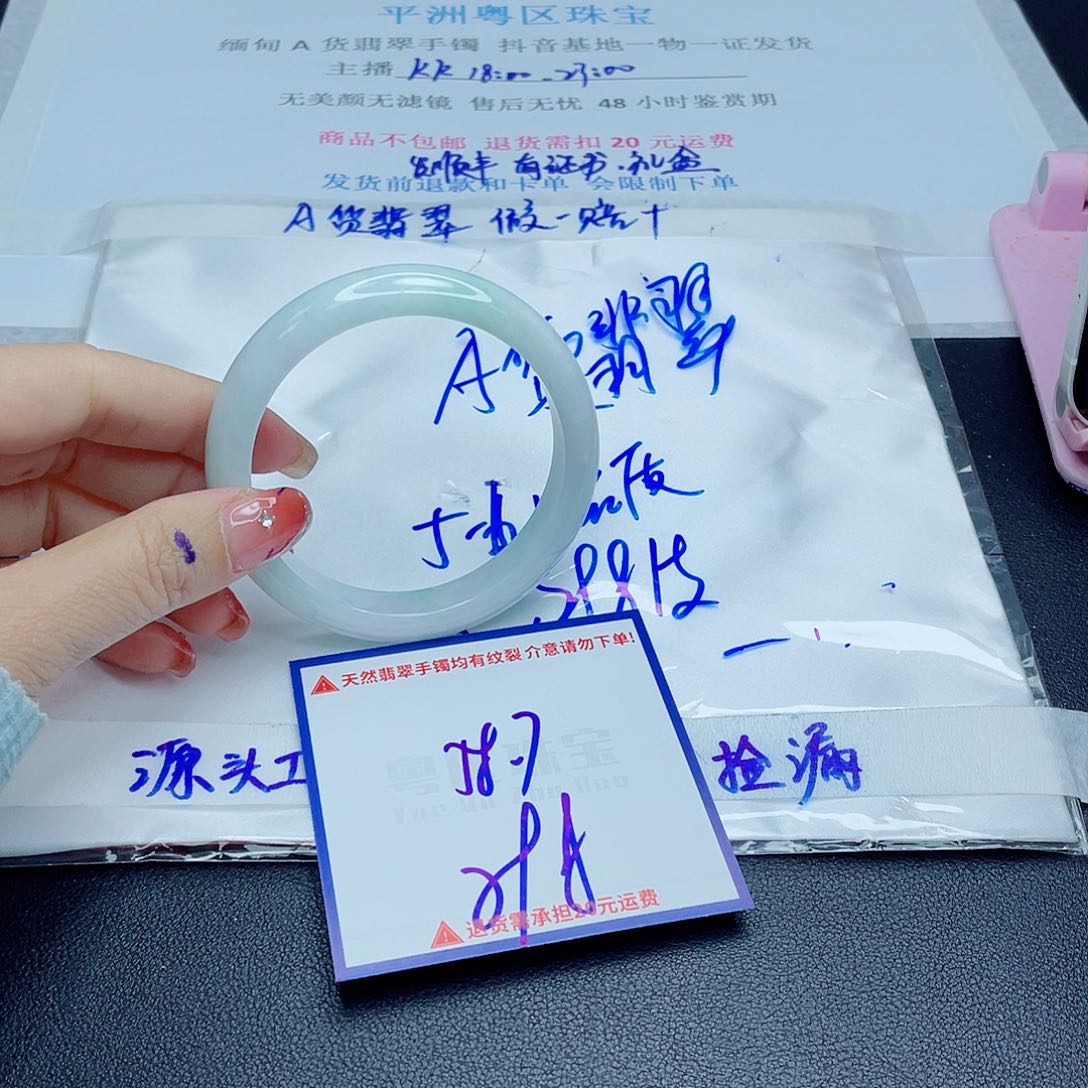 平洲粤区珠宝
缅甸 A 货翡翠手镯 抖音基地一物一证发货
主播 KK 18:00-23:00
无美颜无滤镜 售后无忧 48 小时鉴赏期
商品不包邮 退货需扣 20 元运费
发顺丰 有证书.礼盒
发货前退款和卡单 会限制下单
A货翡翠 假一赔十
A货翡翠
源头工
捡漏
天然翡翠手镯均有纹裂 介意请勿下单!
粤区珠宝
Yue Qu Zhu Bao
退货需承担20元运费